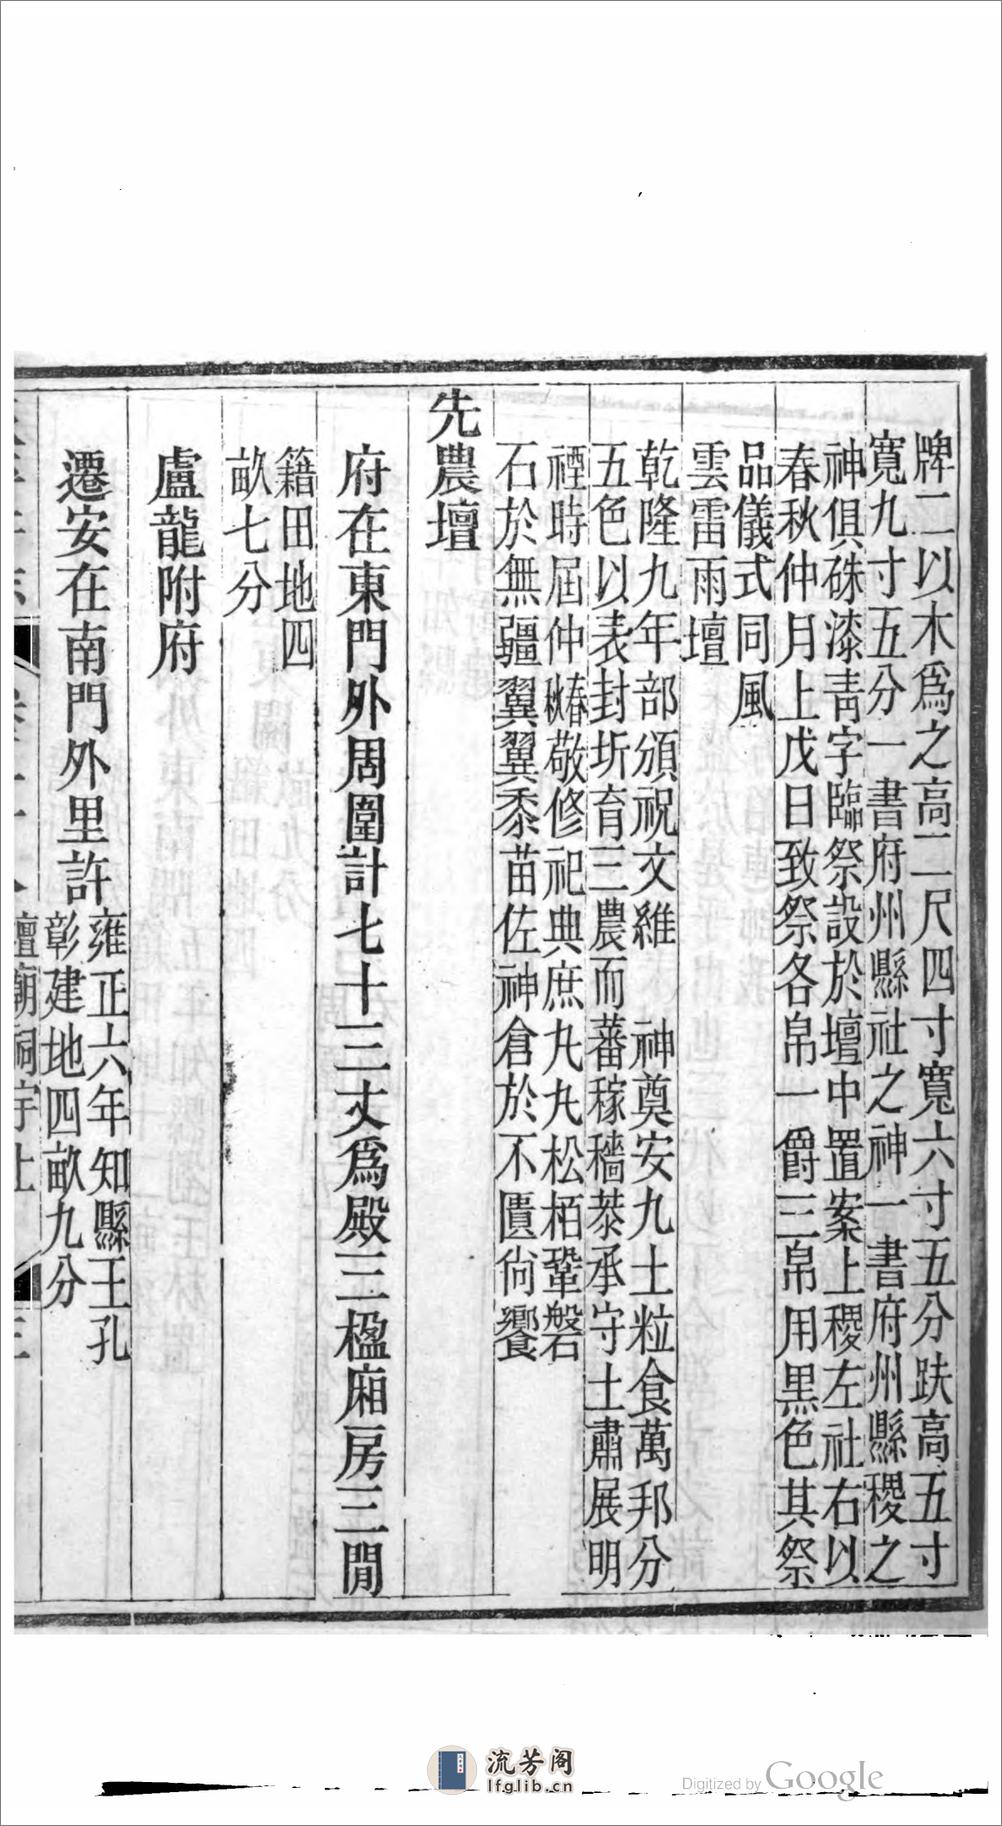 牌二以木爲之高二尺四寸寬六寸五分趺高五寸
寬九寸五分一書府州縣社之神一書府州縣稷之
神俱硃漆靑字臨祭設於壇中置案上稷左社右以
春秋仲月上戊日致祭各帛一爵三帛用黑色其祭
品儀式同風
雲雷雨壇
乾隆九年部頒祝文維 神奠安九土粒食萬邦分
五色以表封圻育三農而蕃稼穡恭承守土肅展明
禋時屆仲春秋敬修祀典庶丸丸松栢鞏磐
石於無疆翼翼黍苗佐神倉於不匱尙饗
先農壇
府在東門外周圍計七十三丈爲殿三楹廂房三間
籍田地四
畝七分
盧龍附府
遷安在南門外里許
雍正六年知縣王孔
彰建地四畝九分
壇廟祠宇上
三
流芳阁
lfglib.cn
Digitized by Google